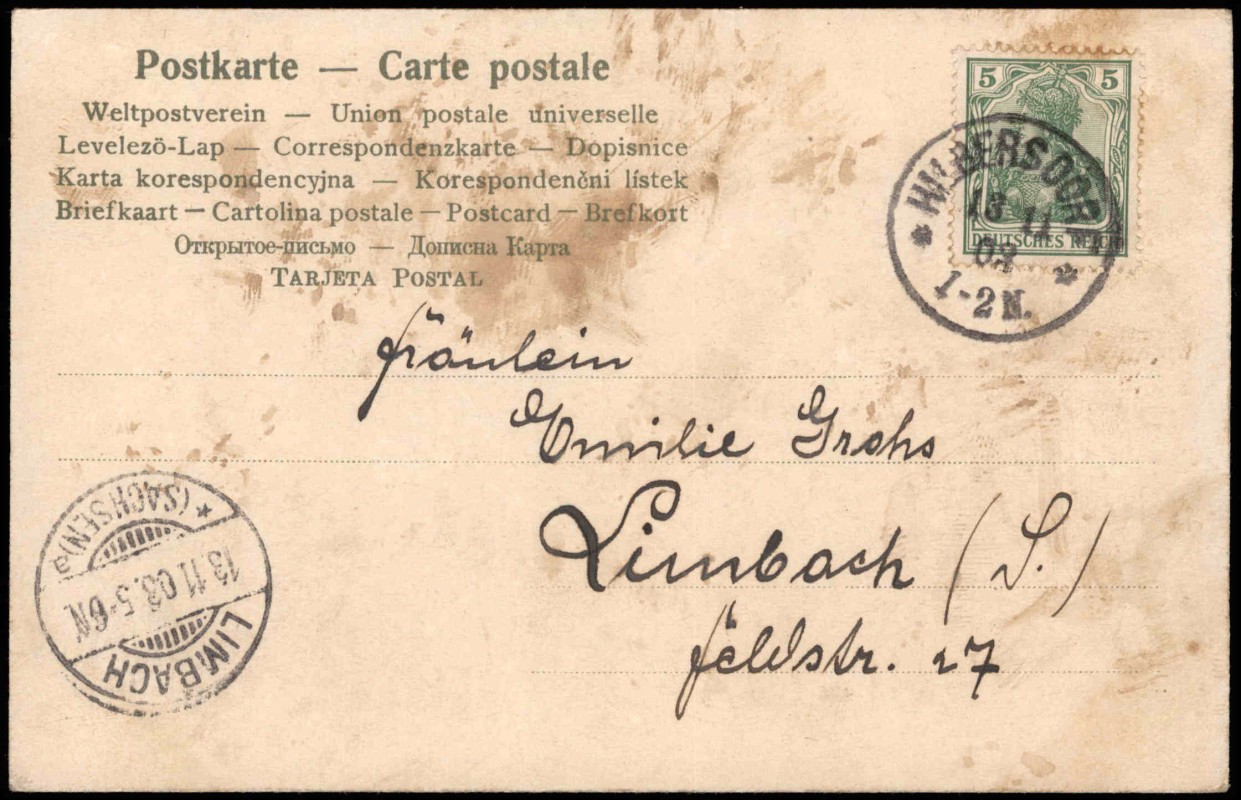 Postkarte — Carte postale
Weltpostverein — Union postale universelle
Levelező-Lap — Correspondenzkarte — Dopisnice
Karta korespondencyjna — Korespondenčni lístek
Briefkaart — Cartolina postale — Postcard — Brefkort
Открытое-письмо — Дописна Карта
TARJETA POSTAL
5 5
DEUTSCHES REICH
* HILBERSDORF *
13 11
03
1-2 N.
Fräulein
Emilie Grohs
Limbach (S.)
Feldstr. 27
LIMBACH
13.11.03.5-6N
* (SACHSEN) a